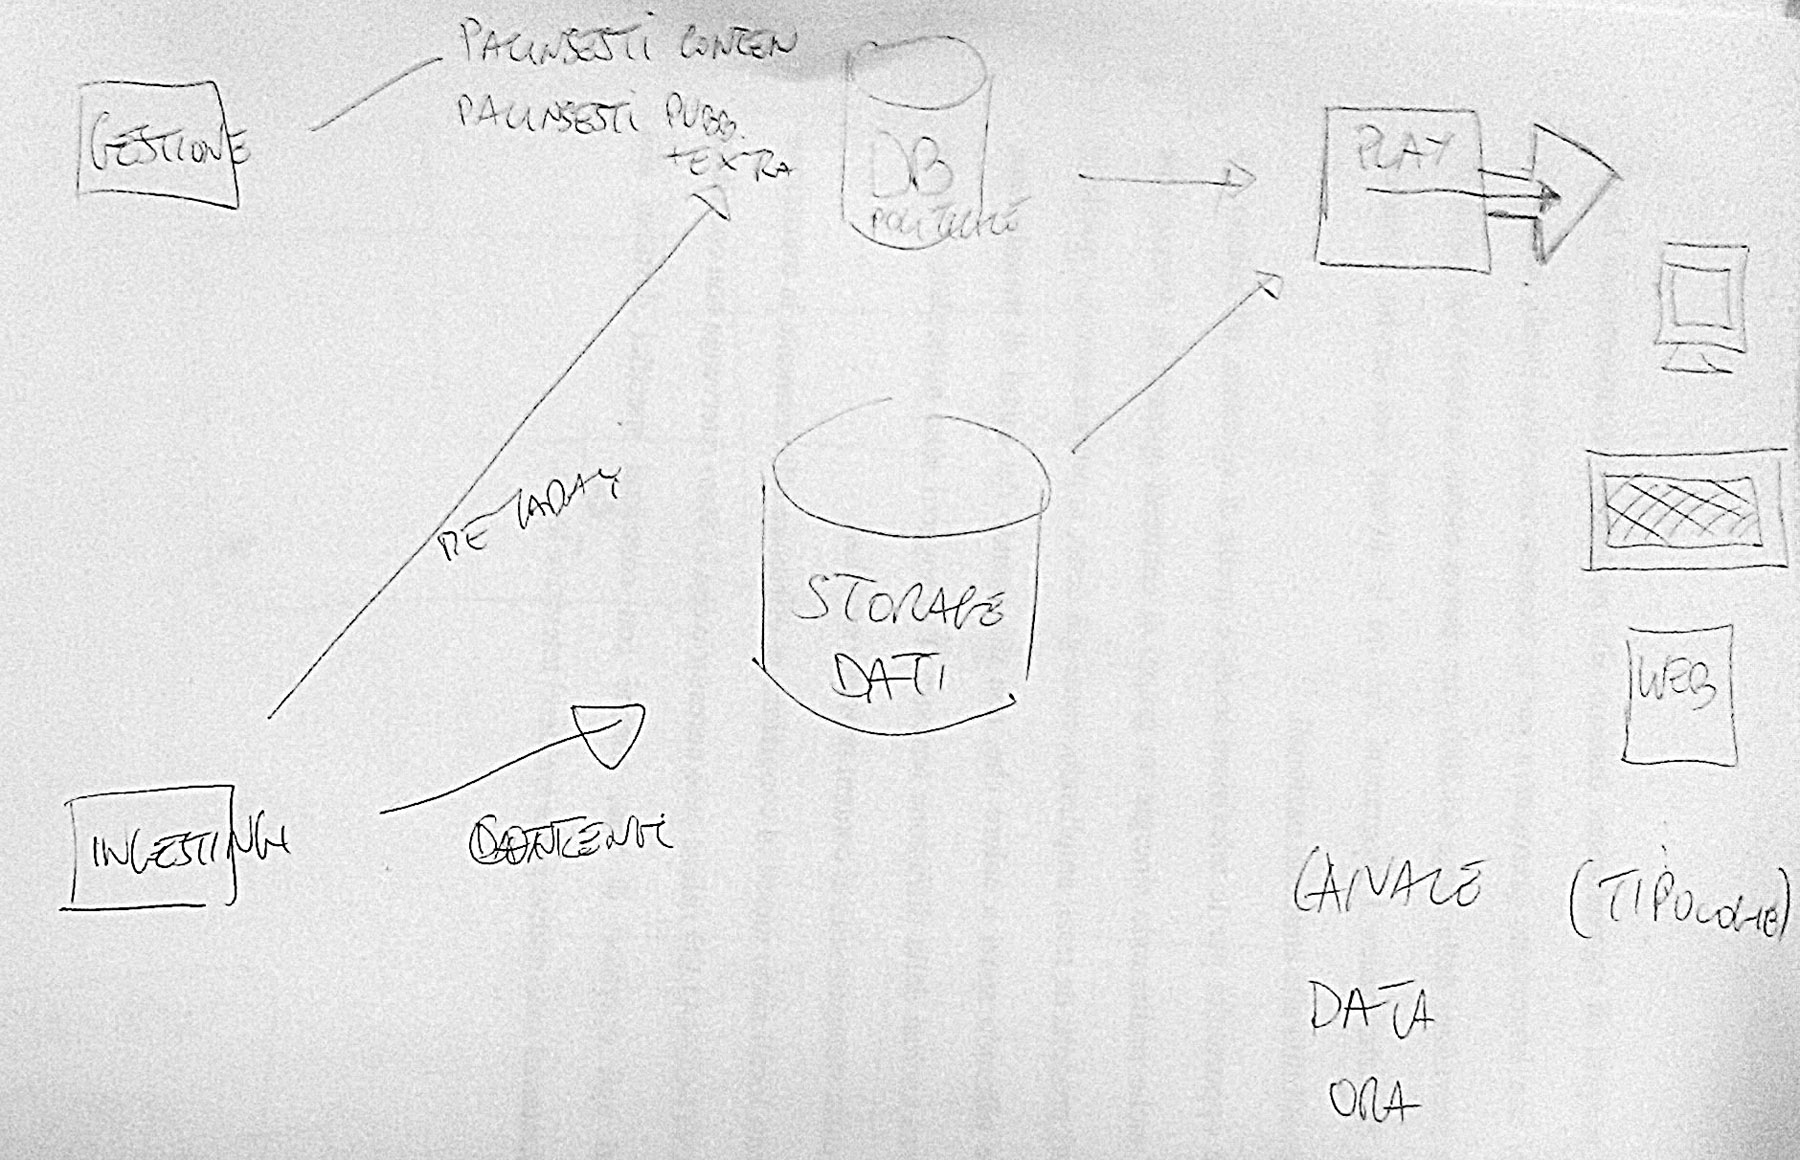 PALINSESTI CONTEN
PALINSESTI PUBB.
+EXTRA
GESTIONE
DB
PLAY
METADATI
STORAGE
DATI
WEB
INGESTING
CONTENUTI
CANALE (TIPOLOGIE)
DATA
ORA